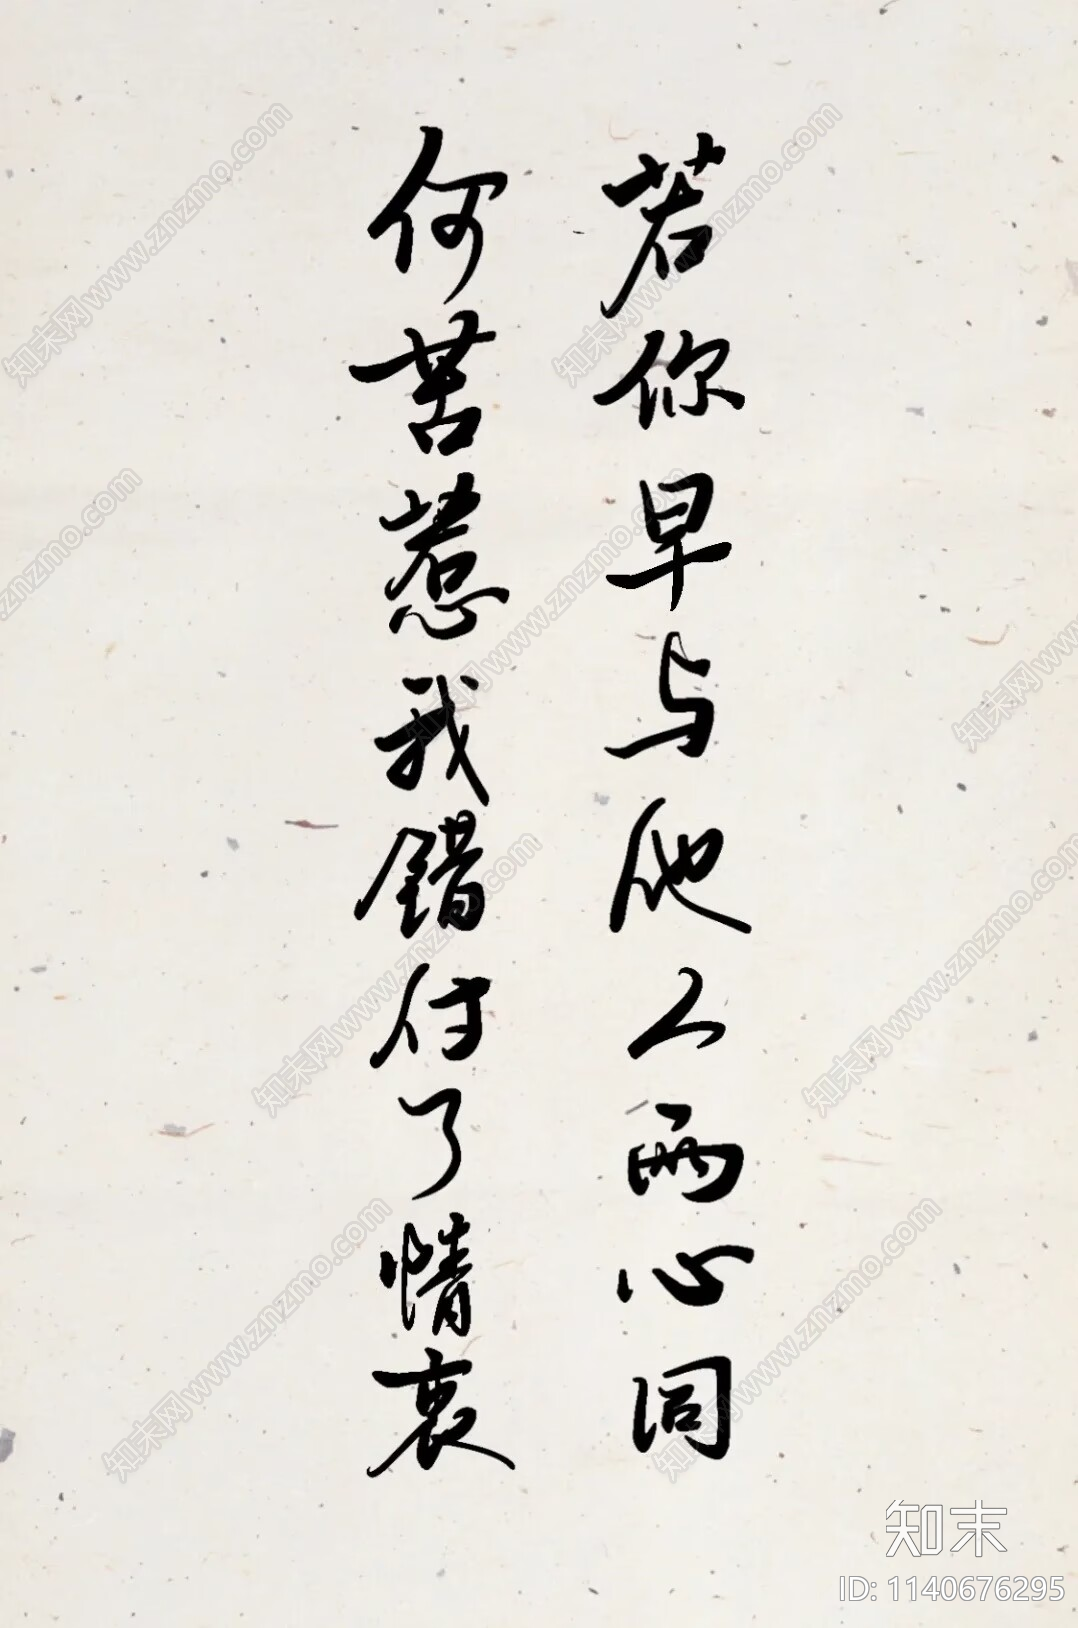 若你早与他人两心同
何苦惹我错付了情衷
知末
ID: 1140676295
知末网www.znzmo.com